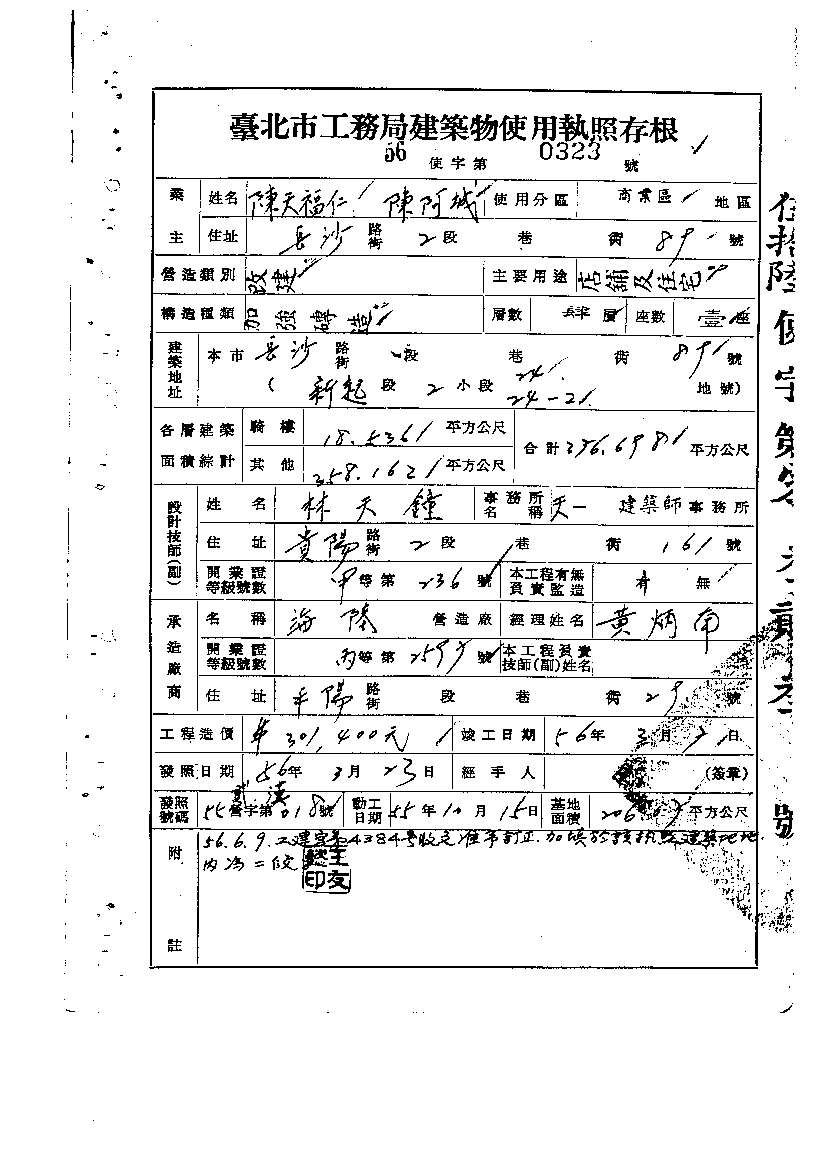 臺北市工務局建築物使用執照存根
56 使字第 0323 號
業主 姓名 陳天福仁 陳阿城 使用分區 商業區 地區
住址 長沙 路街 2段 巷 街 89 號
營造類別 改建 主要用途 店舖及住宅
構造種類 加強磚造 層數 肆層 座數 壹座
建築地址 本市 長沙 路街 段 巷 街 89 號
( 新起 段 2 小段 24 24-2 地號)
各層建築面積綜計 騎樓 18.536 平方公尺 合計 376.698 平方公尺
其他 358.162 平方公尺
設計技師(副) 姓名 林天鐘 事務所名稱 天一 建築師事務所
住址 貴陽 路街 2段 巷 街 161 號
開業證等級號數 甲等第 236 號 本工程有無負責監造 有 無
承造廠商 名稱 海 營造廠 經理姓名 黃炳
開業證等級號數 丙等第 號 本工程負責技師(副)姓名
住址 陽 路街 段 巷 街 29 號
工程造價 301,400元 竣工日期 56年 3月 日
發照日期 56年 3月 23日 經手人 (簽章)
發照號碼 55營字第018號 動工日期 55年10月15日 基地面積 平方公尺
附註 56.6.9.工建字第4384號收文准予訂正.加填
內為二
印友
號